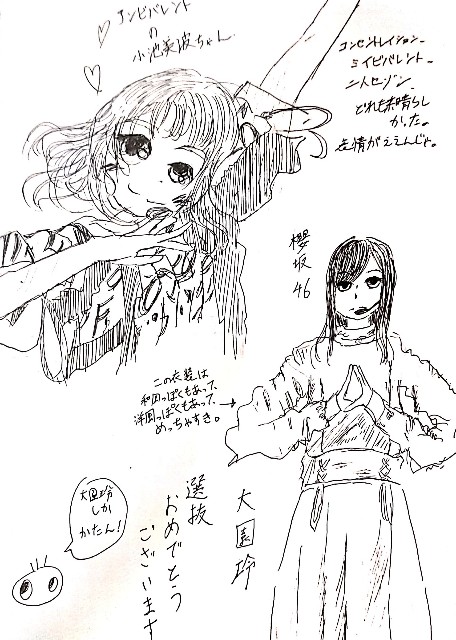 アンビバレント
の
小池美波ちゃん
コンセントレイション、
二人セゾン、
どれも素晴らし
かった。
表情がええんじゃ。
櫻坂46
この衣装は
和風っぽくもあって、
洋風っぽくもあって、
めっちゃすき。
大園玲
選抜
おめでとう
ございます
大園玲
しか
かたん！